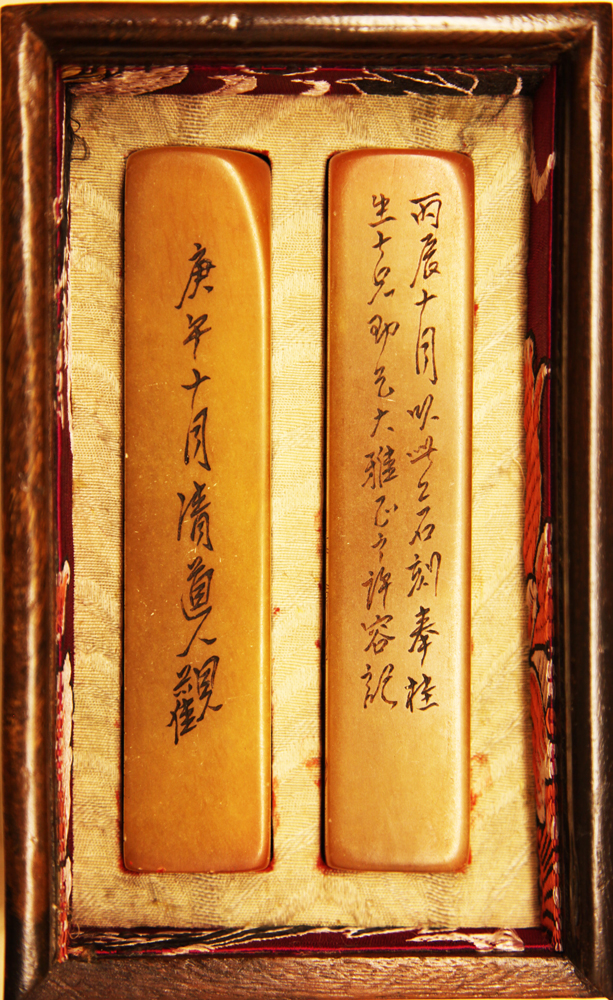 丙辰十月以此二石刻奉桂
生十兄即乞大雅正之許容記
庚午十月清道人觀